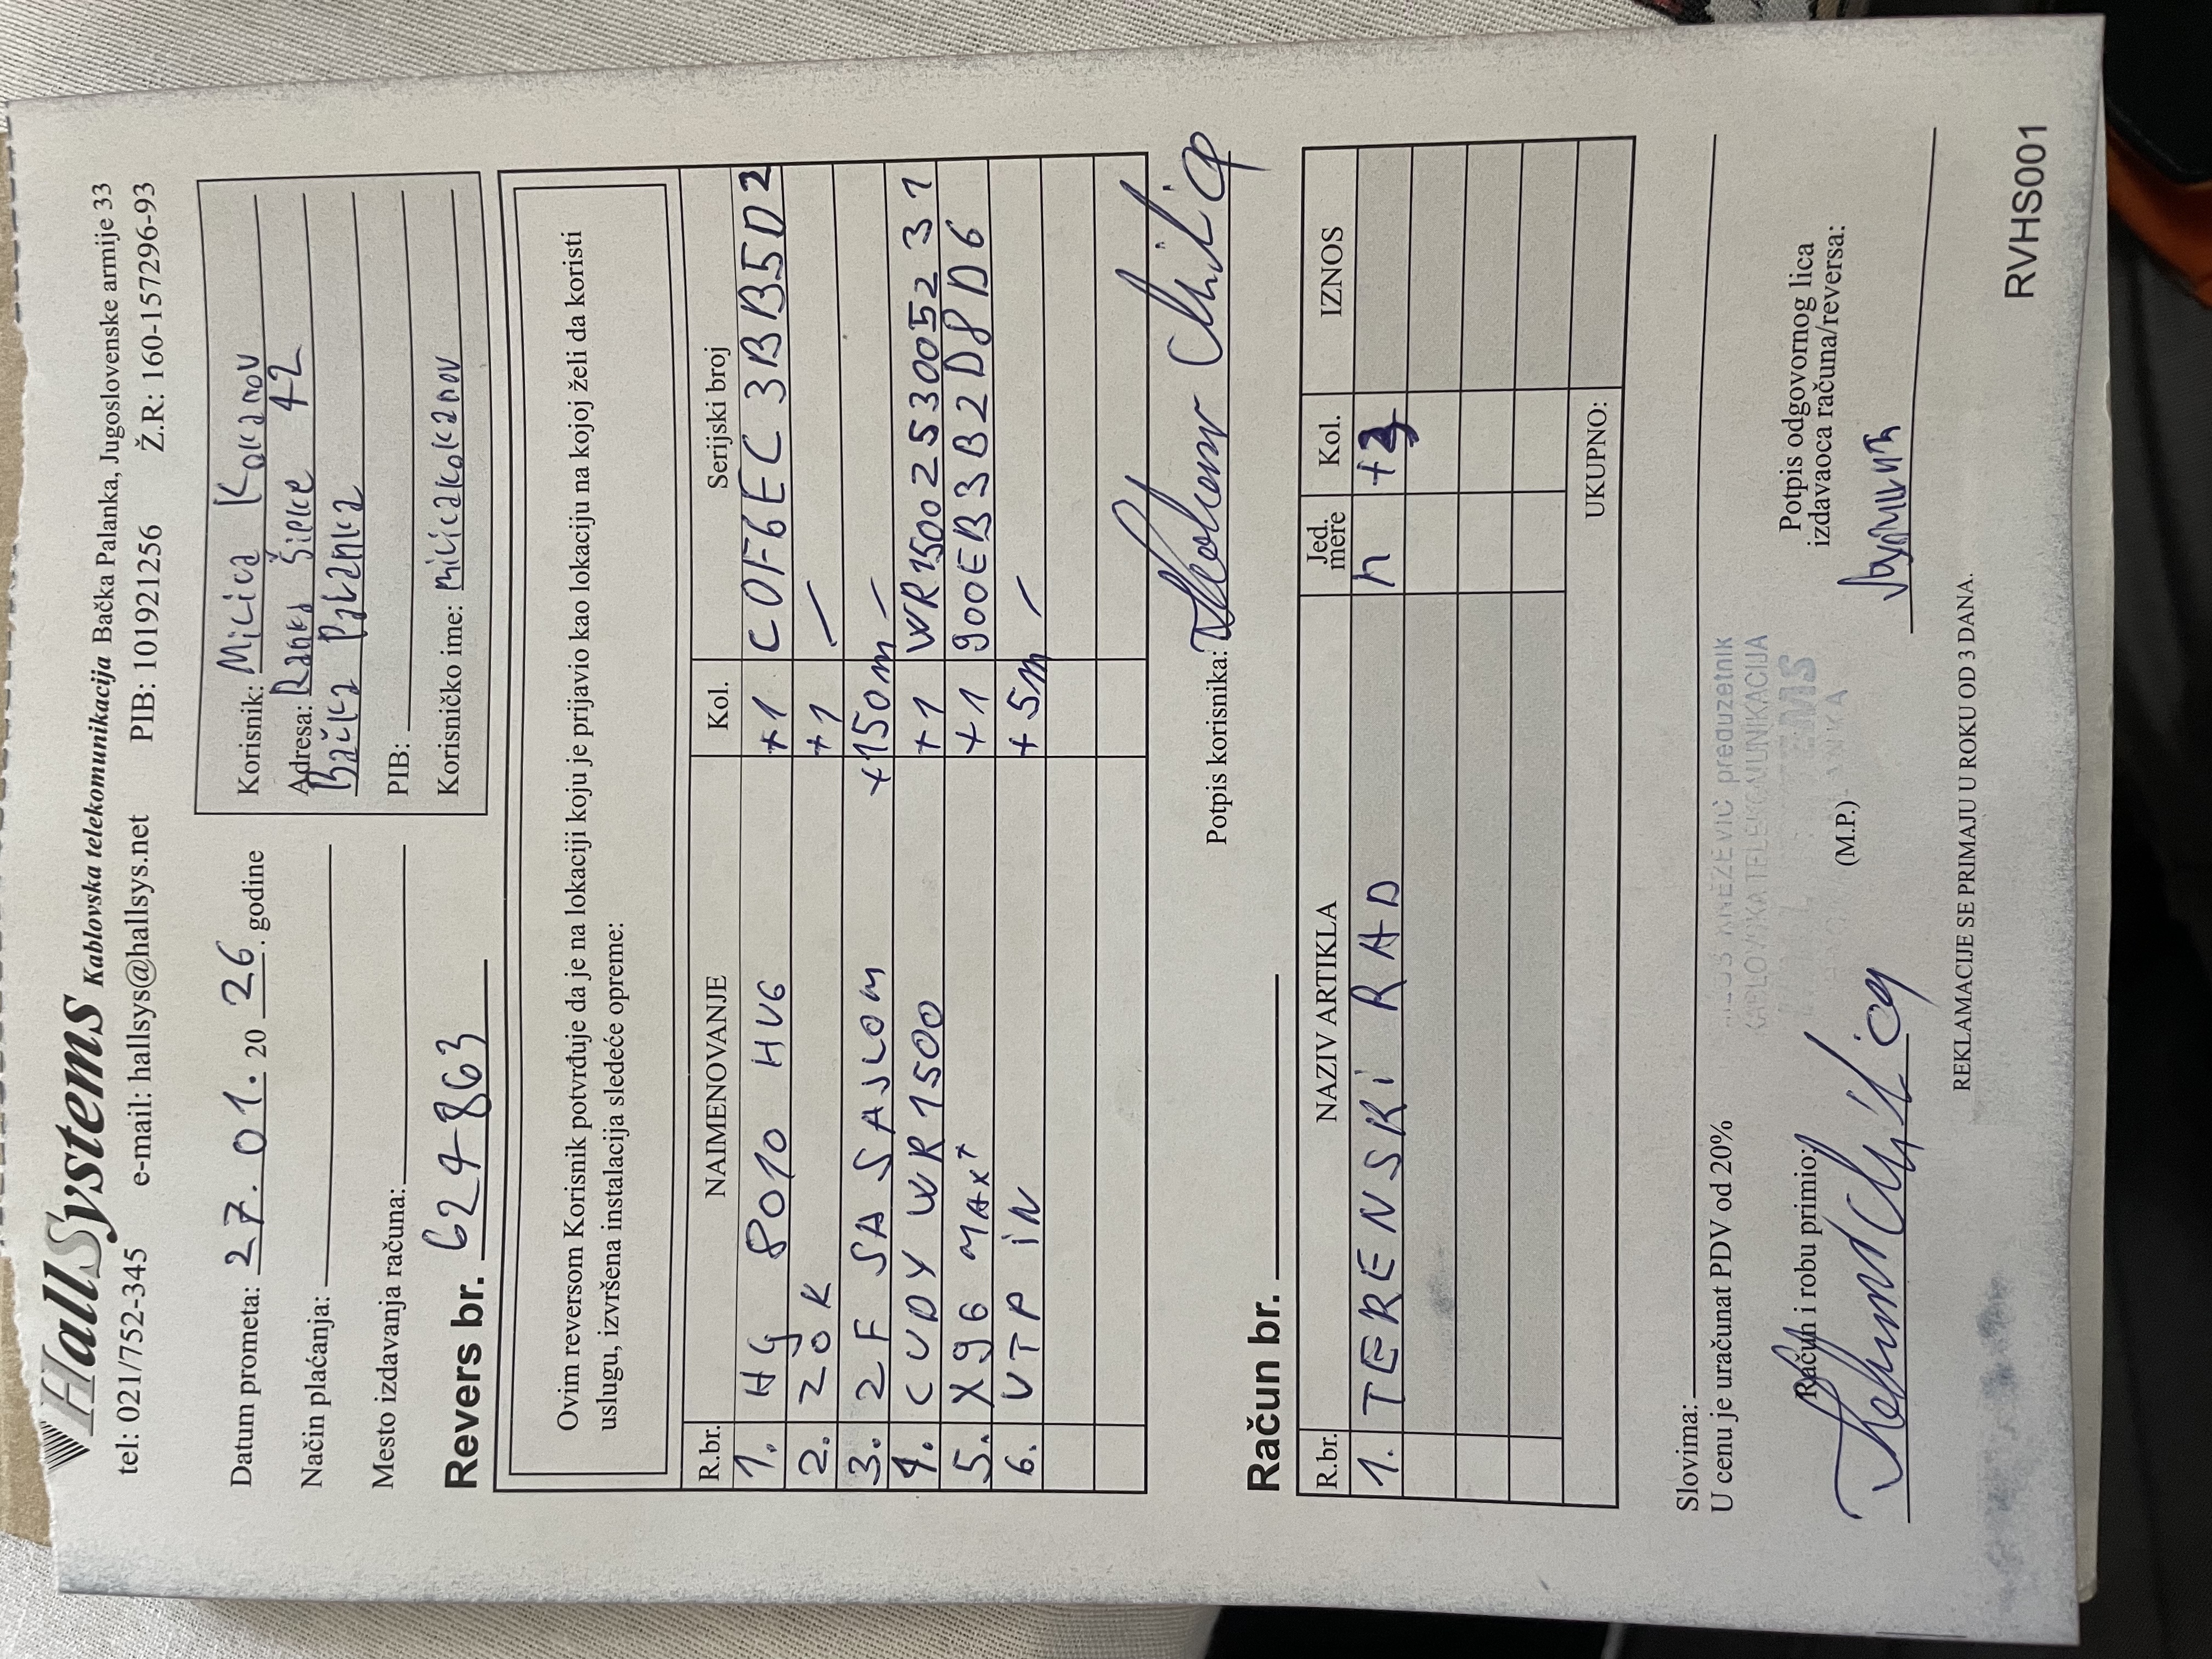 HallSystems Kablovska telekomunikacija Bačka Palanka, Jugoslovenske armije 33
tel: 021/752-345 e-mail: hallsys@hallsys.net PIB: 101921256 Ž.R: 160-157296-93
Datum prometa: 27. 01. 20 26. godine
Način plaćanja:
Mesto izdavanja računa:
Korisnik: Milica Kokanov
Adresa: Ranka Šipke 42
Bačka Palanka
PIB:
Korisničko ime: milicakokanov
Revers br. 624863
Ovim reversom Korisnik potvrđuje da je na lokaciji koju je prijavio kao lokaciju na kojoj želi da koristi
uslugu, izvršena instalacija sledeće opreme:
R.br. NAIMENOVANJE Kol. Serijski broj
1. HG 8010 HV6 +1 C0F6EC3BB5D2
2. ZOK +1 /
3. 2F SA SAJLOM +150m /
4. CUDY WR1500 +1 WR15002530052 31
5. X96 MAX+ +1 900EB3B2D8D6
6. UTP IN +5m /
Potpis korisnika: Kokanov Milica
Račun br.
R.br. NAZIV ARTIKLA Jed. mere Kol. IZNOS
1. TERENSKI RAD h +2
UKUPNO:
Slovima:
U cenu je uračunat PDV od 20%
KNEŽEVIĆ preduzetnik
KABLOVSKA TELEKOMUNIKACIJA
Račun i robu primio:
(M.P.)
Potpis odgovornog lica
izdavaoca računa/reversa:
REKLAMACIJE SE PRIMAJU U ROKU OD 3 DANA.
RVHS001